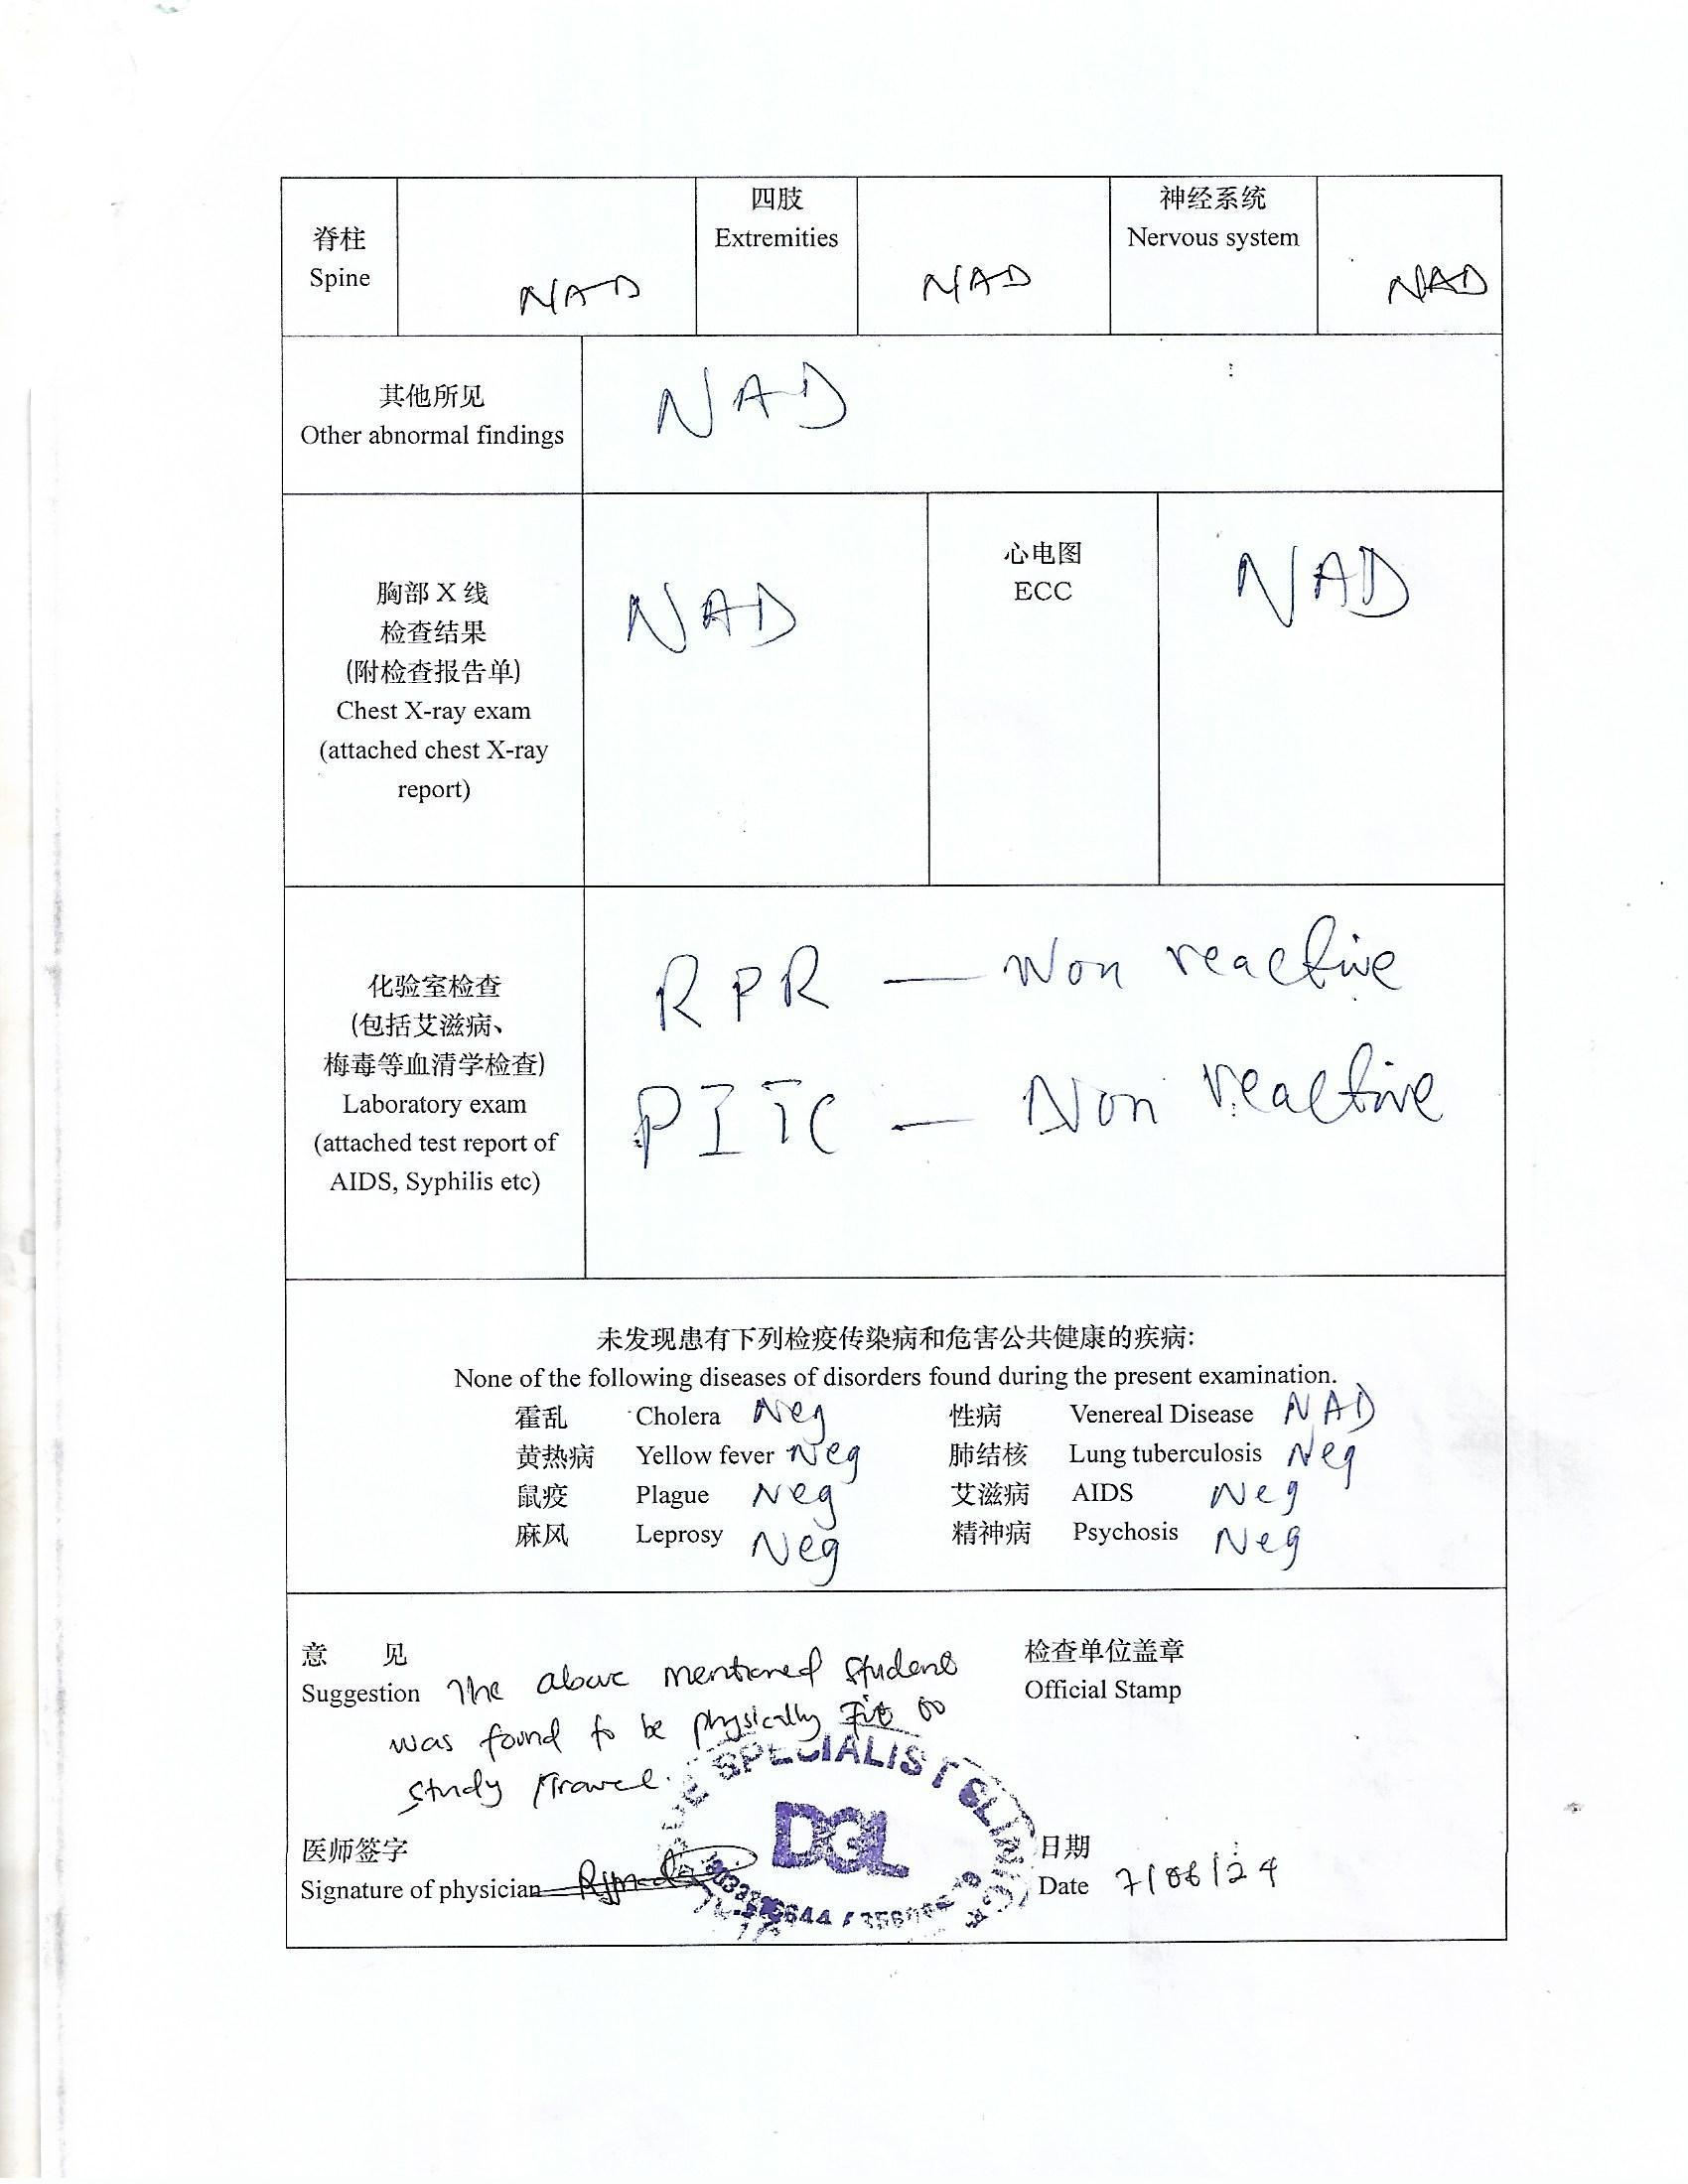 脊柱
Spine
NAD
四肢
Extremities
NAD
神经系统
Nervous system
NAD
其他所见
Other abnormal findings
NAD
胸部 X 线
检查结果
(附检查报告单)
Chest X-ray exam
(attached chest X-ray
report)
NAD
心电图
ECC
NAD
化验室检查
(包括艾滋病、
梅毒等血清学检查)
Laboratory exam
(attached test report of
AIDS, Syphilis etc)
RPR — Non reactive
PITC — Non reactive
未发现患有下列检疫传染病和危害公共健康的疾病:
None of the following diseases of disorders found during the present examination.
霍乱 Cholera Neg 性病 Venereal Disease NAD
黄热病 Yellow fever Neg 肺结核 Lung tuberculosis Neg
鼠疫 Plague Neg 艾滋病 AIDS Neg
麻风 Leprosy Neg 精神病 Psychosis Neg
意 见
Suggestion The above mentioned student
was found to be physically Fit to
study / Travel.
检查单位盖章
Official Stamp
SPECIALIST CLINIC
DGL
医师签字
Signature of physician
日期
Date 7/06/24